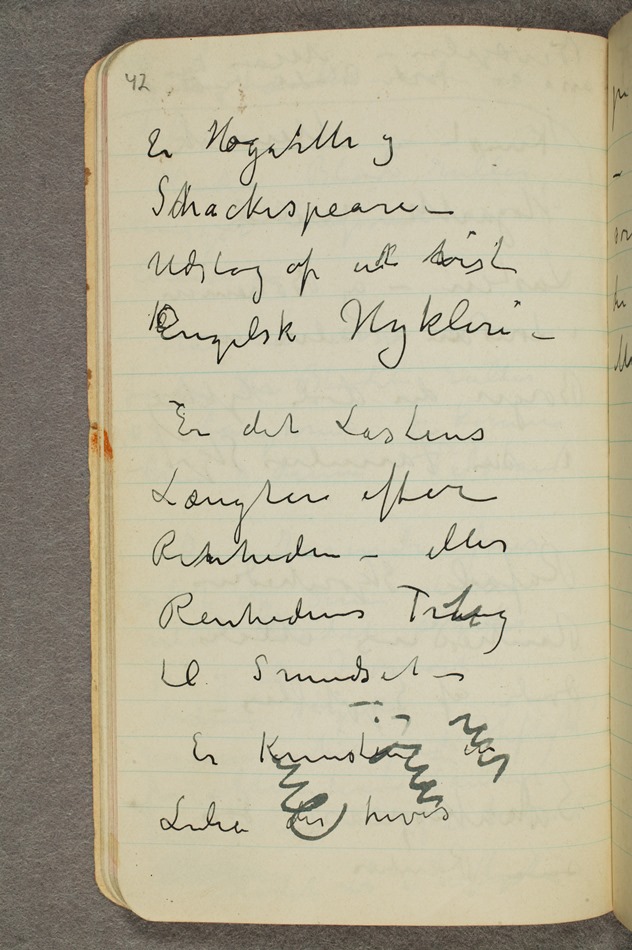 42
Er Hogarth og
Schackespeare –
Udslag af et vist
Engelsk Hykleri –
Er det Lastens
Længten efter
Renheden – eller
Renhedens Trang
til Smudset –
Er Kunsten en
der hvis